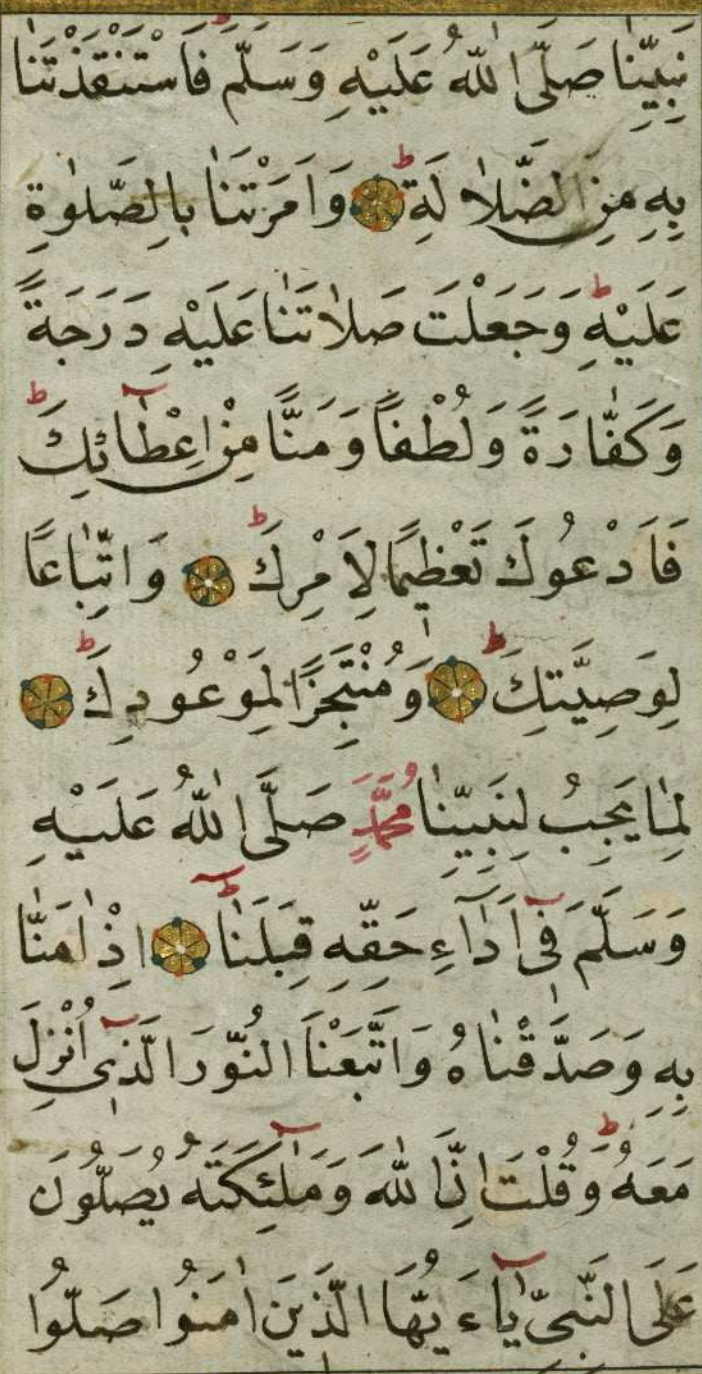 نَبِيِّنَا صَلَّى اللّٰهُ عَلَيْهِ وَسَلَّمَ فَاسْتَنْقَذْتَنَا
بِهِ مِنَ الضَّلَالَةِ وَاَمَرْتَنَا بِالصَّلٰوةِ
عَلَيْهِ وَجَعَلْتَ صَلَاتَنَا عَلَيْهِ دَرَجَةً
وَكَفَّارَةً وَلُطْفًا وَمَنًّا مِنْ اِعْطَائِكَ
فَاَدْعُوكَ تَعْظِيمًا لِاَمْرِكَ وَاتِّبَاعًا
لِوَصِيَّتِكَ وَمُنْتَجِزًا لِمَوْعُودِكَ
لِمَا يَجِبُ لِنَبِيِّنَا مُحَمَّدٍ صَلَّى اللّٰهُ عَلَيْهِ
وَسَلَّمَ فِى اَدَاءِ حَقِّهِ قِبَلَنَا اِذْ اٰمَنَّا
بِهِ وَصَدَّقْنَاهُ وَاتَّبَعْنَا النُّورَ الَّذِى اُنْزِلَ
مَعَهُ وَقُلْتَ اِنَّ اللّٰهَ وَمَلٰٓئِكَتَهُ يُصَلُّونَ
عَلَى النَّبِىِّ يَاءَيُّهَا الَّذِينَ اٰمَنُوا صَلُّوا